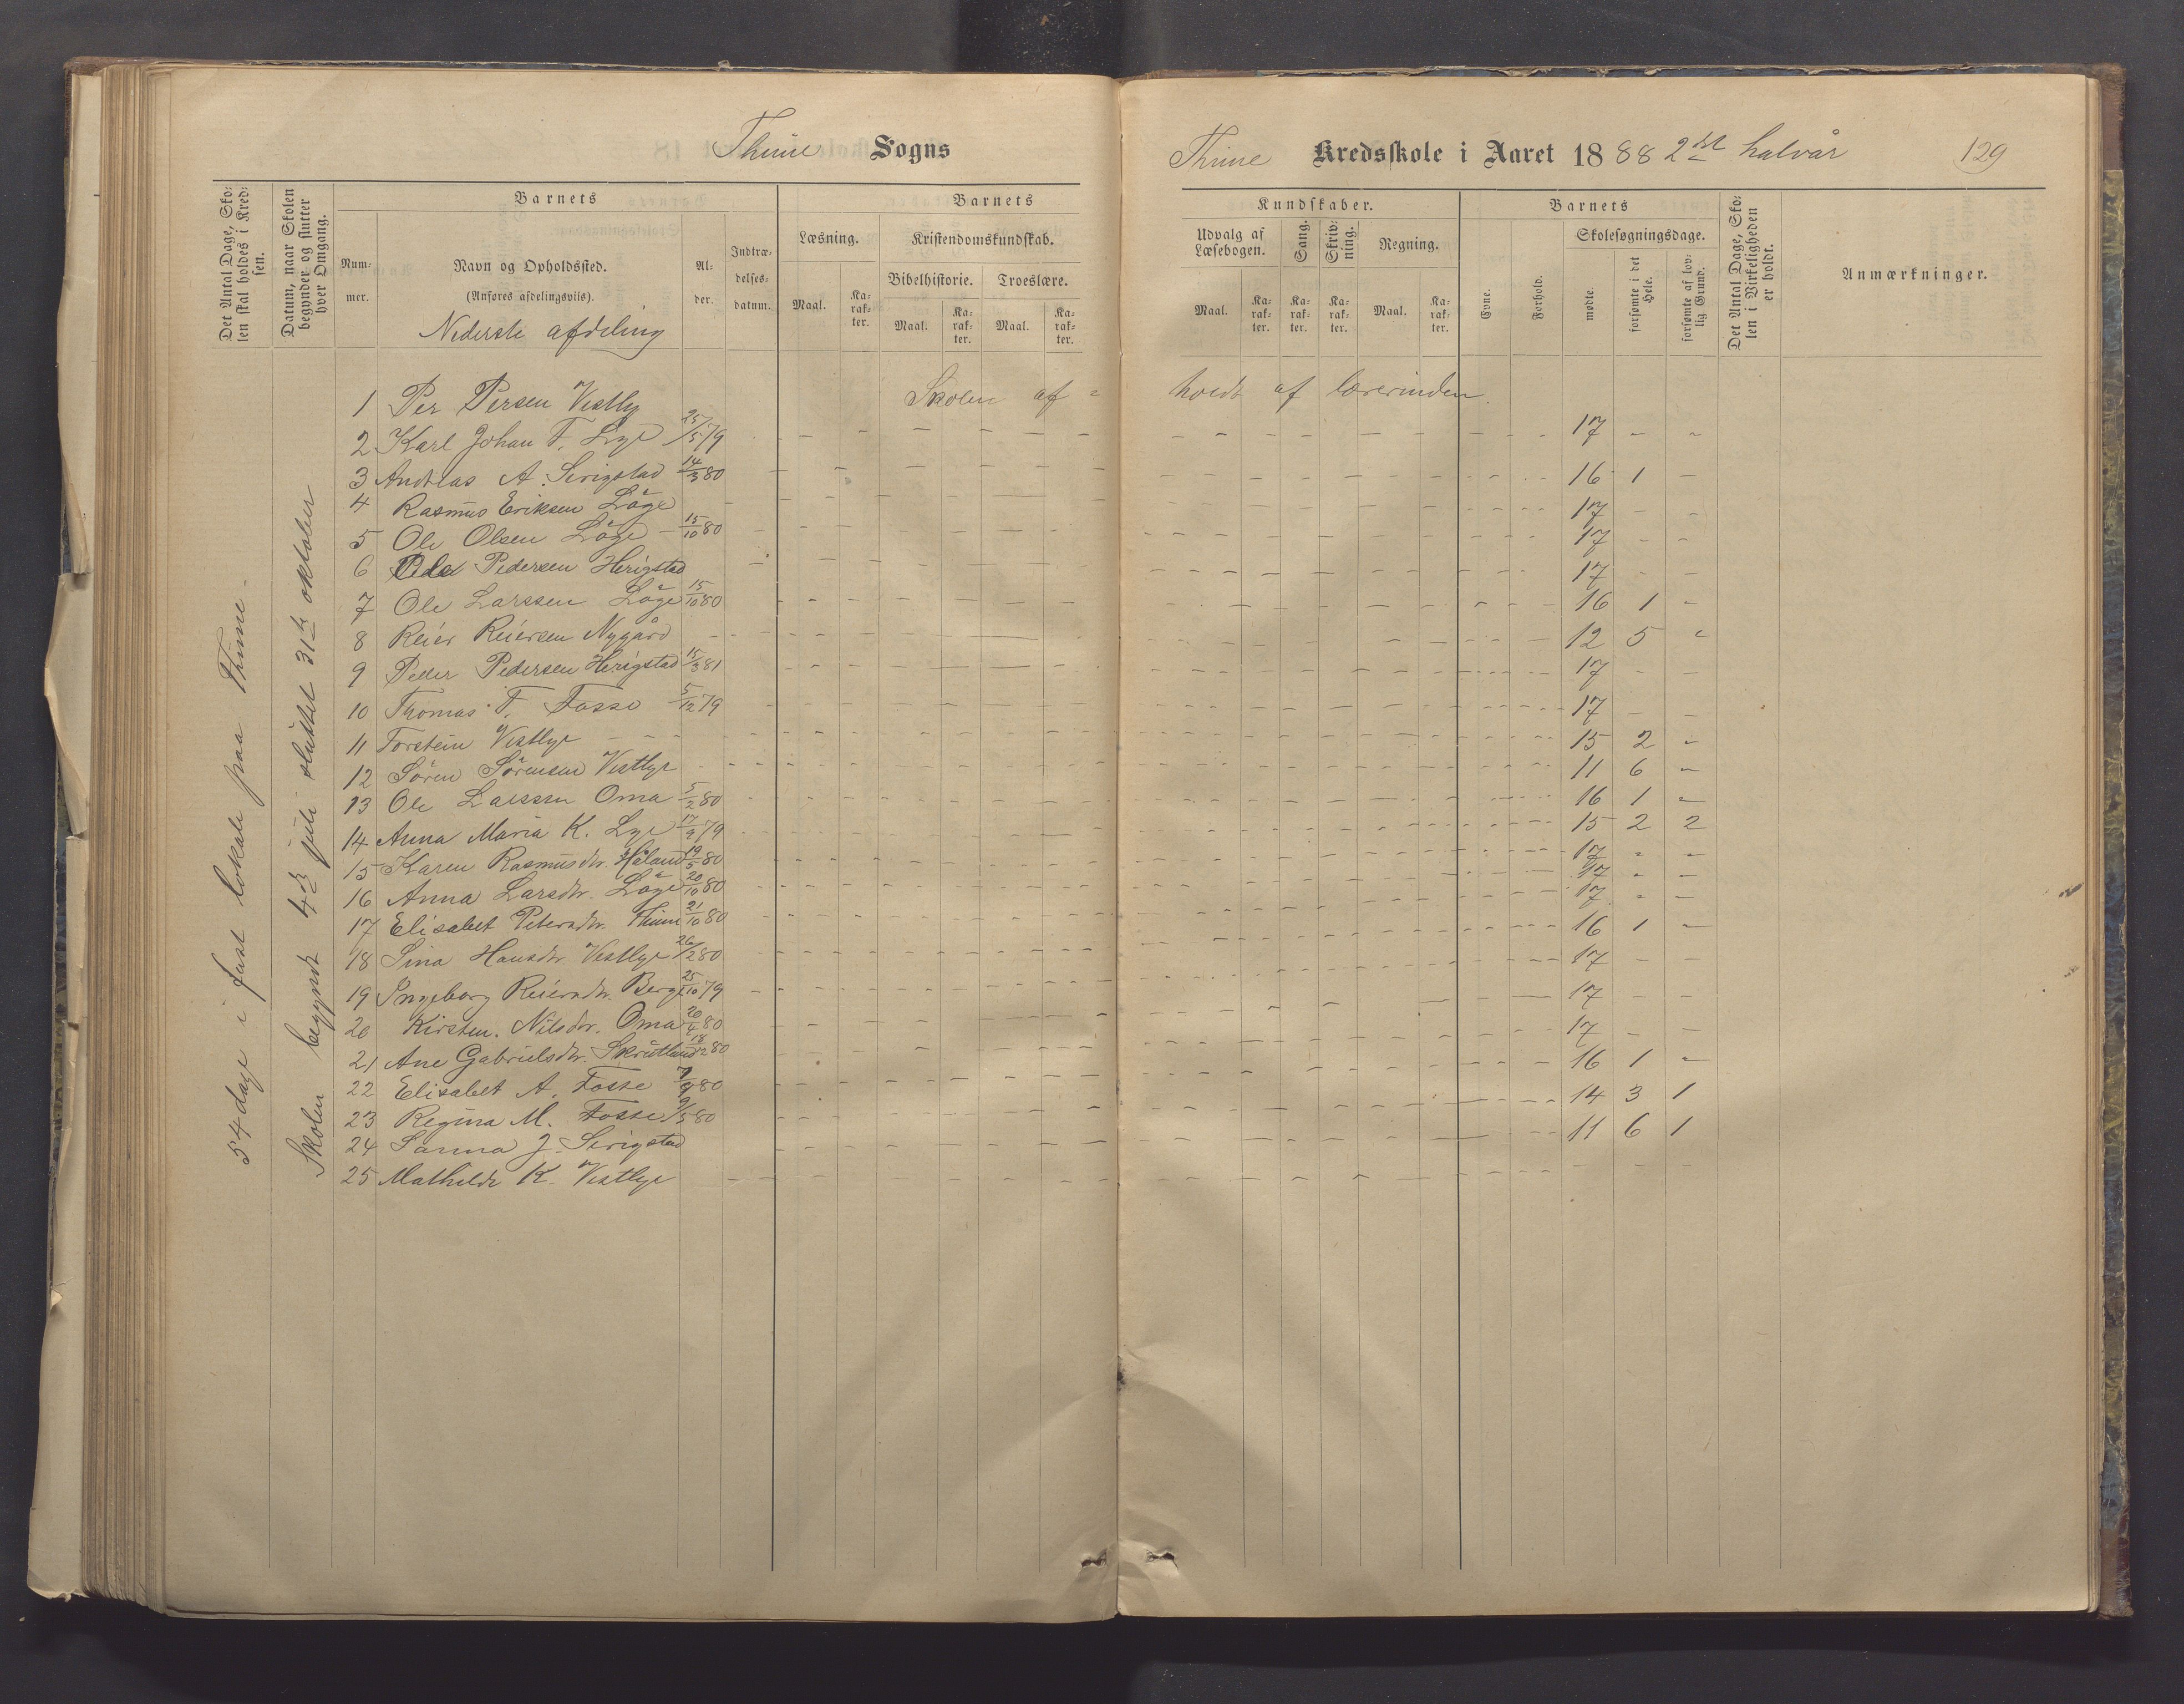 Thime Sogns
Thime Kredsskole i Aaret 1888 2det halvår 129
Det Antal Dage, Sko-
len skal holdes i Kred-
sen.
Datum, naar Skolen
begynder og slutter
hver Omgang.
Barnets
Num-
mer.
Navn og Opholdssted.
(Anføres afdelingsvils).
Nederste afdeling
Al-
der.
Indtræ-
delses-
datum.
Barnets
Læsning.
Maal.
Ka-
rak-
ter.
Kristendomskundskab.
Bibelhistorie.
Maal.
Ka-
rak-
ter.
Troeslære.
Maal.
Ka-
rak-
ter.
Kundskaber.
Udvalg af
Læsebogen.
Maal.
Ka-
rak-
ter.
Sang.
Ka-
rak-
ter.
Skriv-
ning.
Ka-
rak-
ter.
Regning.
Maal.
Ka-
rak-
ter.
Barnets
Evne.
Forhold.
Skolesøgningsdage.
mødte.
forsømte i det
Hele.
forsømte af lov-
lig Grund.
Det Antal Dage, Sko-
len i Virkeligheden
er holdt.
Anmærkninger.
54 dage i fast lokale paa Thime.
Skolen begyndt 4de juli sluttet 31te oktober
Skolen af- holdt af lærerinden.
1 Per Persen Vestly
2 Karl Johan T. Lye 25/5 79 - - - 17 - -
3 Andreas A. Serigstad 14/3 80 - - - 16 1 -
4 Rasmus Eriksen Löge - - - 17 - -
5 Ole Olsen Löge - 15/10 80 - - - 17 - -
6 Peder Pedersen Herigstad - - - 17 - -
7 Ole Larssen Löge 15/10 80 - - - 16 1 -
8 Reier Reiersen Nygård - - - 12 5 -
9 Peder Pedersen Herigstad 15/3 81 - - - 17 - -
10 Thomas T. Fosse 5/12 79 - - - 17 - -
11 Torstein Vestlye - - - 15 2 -
12 Sören Sörensen Vestlye - - - 11 6 -
13 Ole Larssen Oma 5/2 80 - - - 16 1 -
14 Anna Maria K. Lye 17/9 79 - - - 15 2 2
15 Karen Rasmusdtr. Håland 19/5 80 - - - 17 - -
16 Anna Larsdtr. Löge 20/10 80 - - - 17 - -
17 Elisabet Petersdtr. Thime 21/10 80 - - - 17 - -
18 Sina Hansdtr Vestlye 26/2 80 - - - 16 1 -
19 Ingeborg Reiersdtr. Berge 25/10 79 - - - 17 - -
20 Kirsten. Nilsdtr. Oma 20/4 80 - - - 17 - -
21 Ane Gabrielsdtr. Skrutland 18/12 80 - - - 17 - -
22 Elisabet A. Fosse 7/9 80 - - - 16 1 -
23 Regina M. Fosse 9/5 80 - - - 14 3 1
24 Sanna J. Serigstad - - - 11 6 1
25 Mathilde K. Vestlye - - -